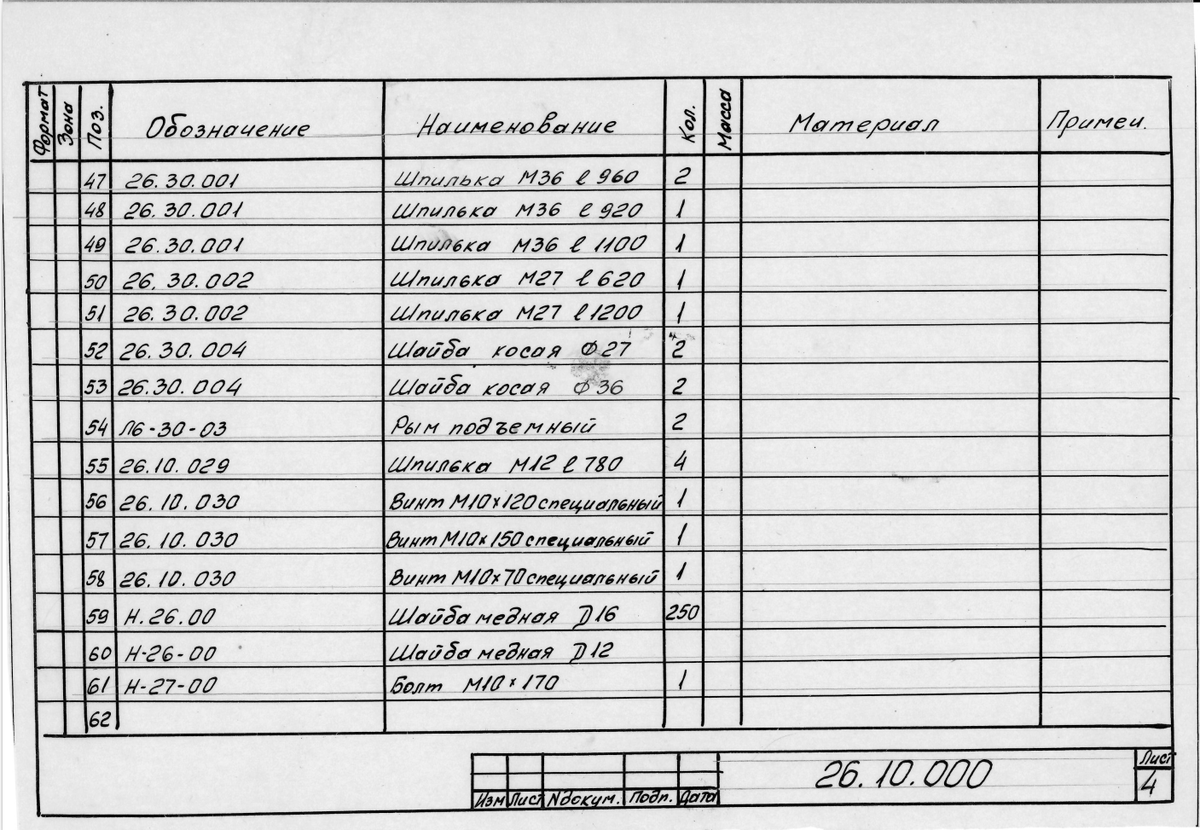 Формат Зона Поз. Обозначение Наименование Кол. Масса Материал Примеч.
47 26.30.001 Шпилька М36 ℓ 960 2
48 26.30.001 Шпилька М36 ℓ 920 1
49 26.30.001 Шпилька М36 ℓ 1100 1
50 26.30.002 Шпилька М27 ℓ 620 1
51 26.30.002 Шпилька М27 ℓ 1200 1
52 26.30.004 Шайба косая Ф27 2
53 26.30.004 Шайба косая Ф36 2
54 Л6-30-03 Рым подъемный 2
55 26.10.029 Шпилька М12 ℓ 780 4
56 26.10.030 Винт М10×120 специальный 1
57 26.10.030 Винт М10×150 специальный 1
58 26.10.030 Винт М10×70 специальный 1
59 Н.26.00 Шайба медная D16 250
60 Н-26-00 Шайба медная D12
61 Н-27-00 Болт М10×170 1
62
26.10.000
Лист
4
Изм Лист Nдокум. Подп. Дата